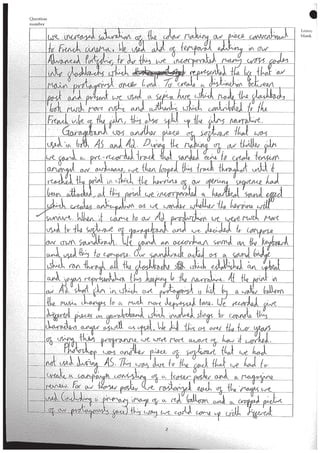 Question
number
Leave
blank
we increased saturation of the colour making our piece conventional
to French cinema. We used alot of temporal editing in our
Advanced Portfolio, to do this we incorporated many cross fades
into flashbacks which represented the life that our
main protagonist once had. To create a distinction between
past and present we used a sepia hue which made the flashbacks
both much more rustic and authentic which contributed to the
French vibe of the film, this also split up the films narrative.
Garageband was another piece of software that was
used in both AS and A2. During the making of our thriller film
we found a pre-recorded track that sounded eerie to create tension
amongst our audience, we then looped this track throughout until it
reached the point in which the heroine of our opening sequence had
been attacked. At this point we incorporated a heartbeat sound effect
which creates anticipation as we wonder whether the heroine will
survive. When it came to our A2 production we were much more
used to the software of garageband and we decided to compose
our own soundtrack. We found an accordian sound on the keyboard
and used this to compose. Our soundtrack acted as a sound bridge
which ran through all the flashbacks which established an upbeat
and joyous representation this keeping to the narrative. At the point in
our A2 short film in which our protagonist is hit by a water balloon
the music changes to a much more depressed tone. We recorded five
different pieces on garageband which involved drops to connote this
characters anger as well as upset. We did this as over the two years
of using this programme we were more aware of how it worked.
Photoshop was another piece of software that we had
not used during AS. This was due to the fact that we had to
create a campaign consisting of a teaser poster and a magazine
review. For our teaser poster we rasterized each of the images we
used (including a primary image of a red balloon and a cropped picture
of our protagonists face) this way we could come up with different
2